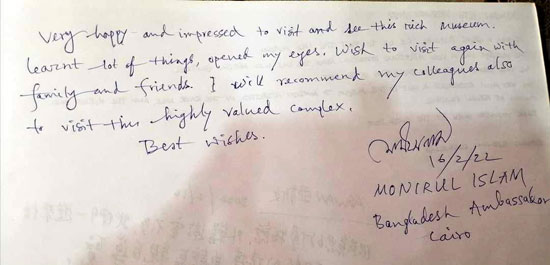 Very happy and impressed to visit and see this rich museum.
Learnt lot of things, opened my eyes. Wish to visit again with
family and friends. I will recommend my colleagues also
to visit this highly valued complex.
Best wishes.
16/2/22
MONIRUL ISLAM
Bangladesh Ambassador
Cairo